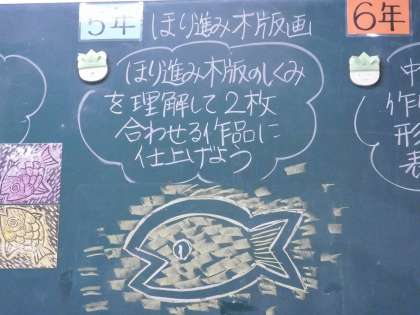 5年 ほり進み木版画
ほり進み木版のしくみ
を理解して2枚
合わせる作品に
仕上げよう
6年
中
作
形
表